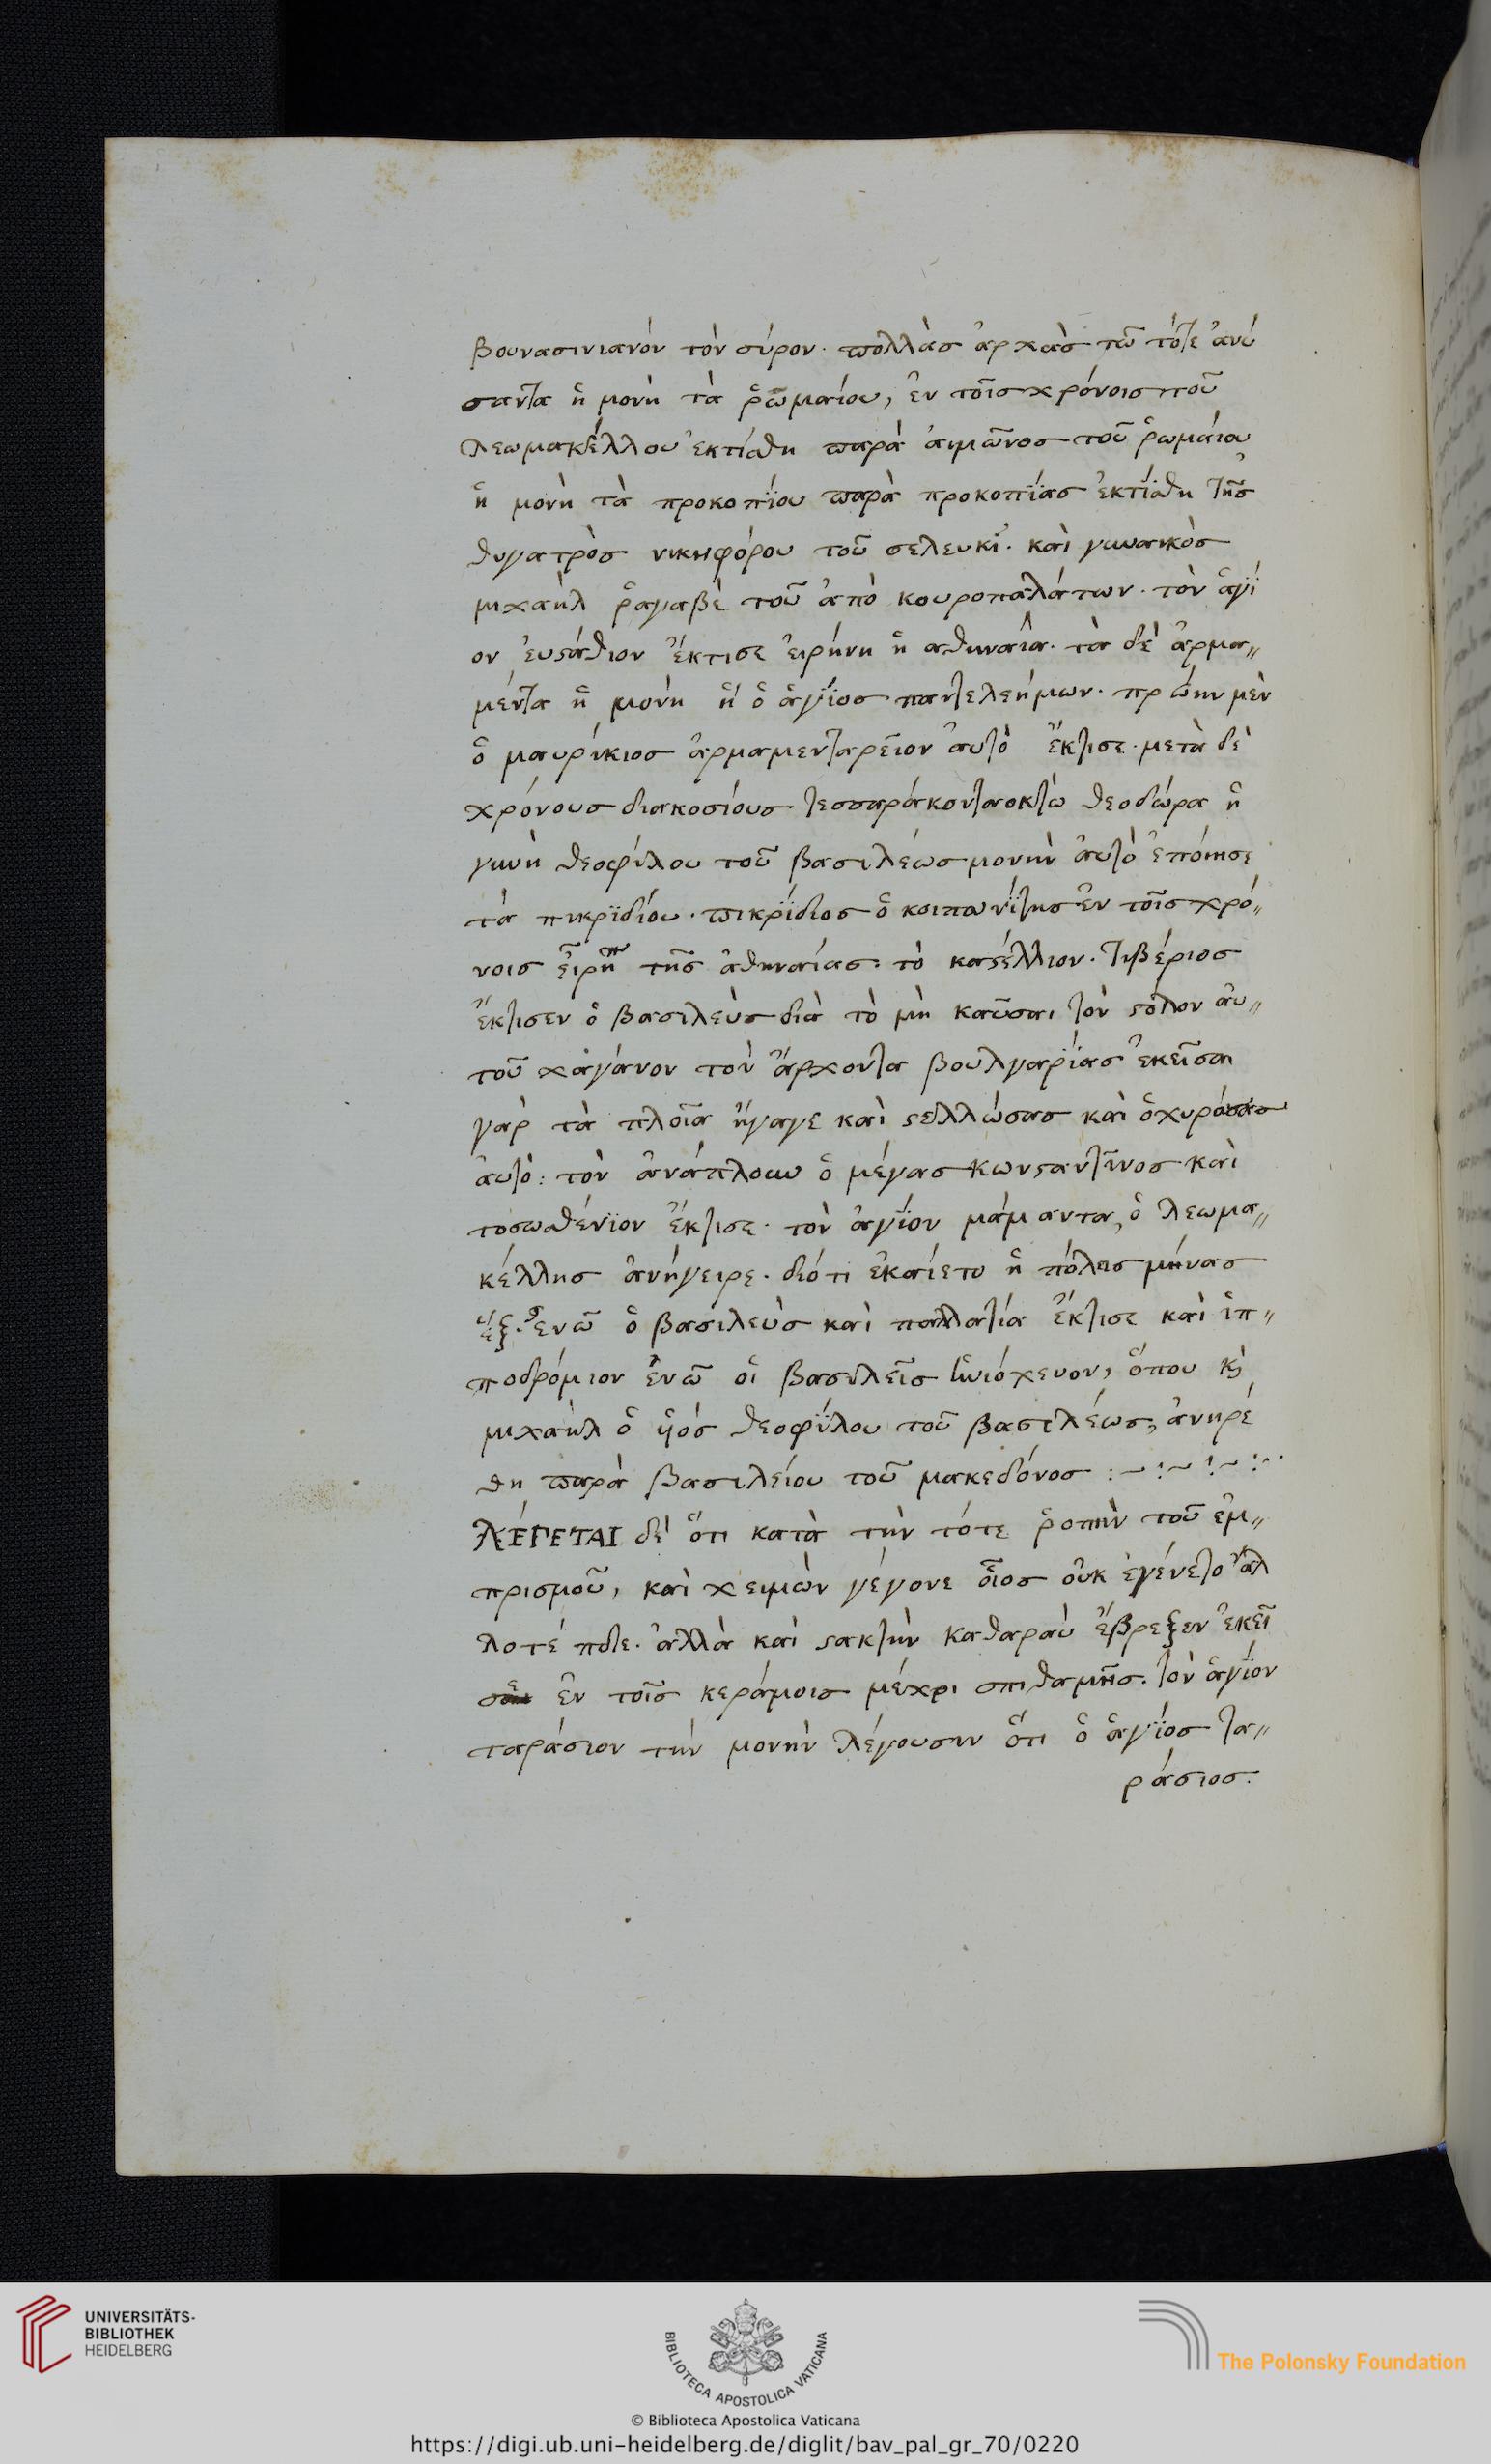 βουνασινιανόν τὸν σύρον· πολλὰσ ἀρχὰσ τῶ τότε ἀνύ
σαντα ἡ μονὴ τὰ ῥωμαίου, ἐν τοῖσ χρόνοισ τοῦ
λεωμακέλλου ἐκτίσθη παρὰ ἁιμῶνοσ τοῦ ῥωμάιου
ἡ μονὴ τὰ προκοπΐου παρὰ προκοπΐασ ἐκτΐσθη τῆσ
θυγατρὸσ νικηφόρου τοῦ σελευκϊ· καὶ γυναικὸσ
μιχαὴλ ῥαγαβὲ τοῦ ἀπὸ κουροπαλάτων· τὸν ἅγϊ
ον ἐυστάθιον ἔκτισε ἐιρήνη ἡ αθηναΐα· τὰ δὲ ἀρμα〃
μέντα ἡ μονὴ ἡ ὁ ἅγΐοσ παντελεήμων· πρώην μὲν
ὁ μαυρίκιοσ ἀρμαμενταρεῖον ἀυτὸ ἔκτισε· μετὰ δὲ
χρόνουσ διακοσίουσ τεσσαράκοντα οκτὼ θεοδώρα ἡ
γυνὴ θεοφίλου τοῦ βασιλέωσ μονὴν ἀυτὸ ἐπόιησε
τὰ πικρϊδίου· πικρΐδιοσ ὁ κοιτωνΐτησ ἐν τοῖσ χρό〃
νοισ εἰρή τῆσ ἀθηναίασ· τὸ καστέλλιον· τιβέριοσ
ἔκτισεν ὁ βασιλεὺσ διὰ τὸ μὴ καῦσαι τὸν στόλον ἀυ〃
τοῦ χαγάνον τὸν ἄρχοντα βουλγαρΐασ ἐκεῖσαι
γὰρ τὰ πλοῖα ἤγαγε καὶ στελλώσασ καὶ ὀχυρόσασ
ἀυτὸ: τὸν ἀνάπλουν ὁ μέγασ κωνσταντῖνοσ καὶ
τοσωσθένϊον ἔκτισε· τὸν ἁγΐον μάμαντα, ὁ λεωμα〃
κέλλησ ἀνήγειρε· διότι ἐκαίετο ἡ πόλεισ μήνασ
ἕξ· ἐνῶ ὁ βασιλεὺσ καὶ παλλατία ἔκτισε καὶ ἱπ〃
ποδρόμιον ἐνῶ οἱ βασιλεῖσ ἡνιόχευον, ὅπου κὶ
μιχαὴλ ὁ ὑὸσ θεοφΐλου τοῦ βασιλέωσ, ἀνηρέ
θη παρὰ βασιλείου τοῦ μακεδόνοσ :~:~:~:··
ΛΈΓΕΤΑΙ δὲ ὅτι κατὰ τὴν τότε ῥοπὴν τοῦ ἐμ〃
πρισμοῦ, καὶ χειμὼν γέγονε οἷοσ οὐκ ἐγένετο ἄλ
λοτέ ποτε· ἀλλὰ καὶ στακτὴν καθαρὰν ἔβρεξεν ἐκεῖ
σε ἐν τοῖσ κεράμοισ μέχρι σπιθαμῆσ· τὸν ἅγΐον
ταράσιον τὴν μονὴν λέγουσιν ὅτι ὁ ἅγΐοσ τα〃
ράσιοσ.
UNIVERSITÄTS-
BIBLIOTHEK
HEIDELBERG
BIBLIOTECA APOSTOLICA VATICANA
The Polonsky Foundation
© Biblioteca Apostolica Vaticana
https://digi.ub.uni-heidelberg.de/diglit/bav_pal_gr_70/0220